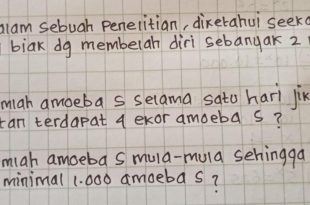 alam sebuah penelitian, diketahui seeko
biak dg membelah diri sebanyak 2
mlah amoeba S selama satu hari jik
tan terdapat 4 ekor amoeba S ?
mlah amoeba S mula-mula sehingga
minimal 1.000 amoeba S ?